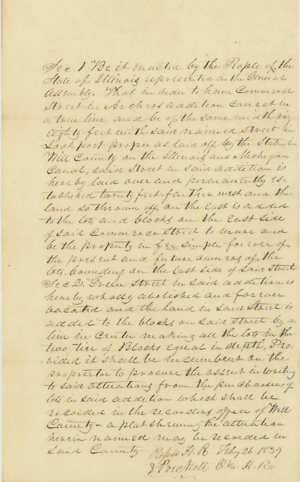 Sec. 1 Be it enacted by the People of the
State of Illinois represented in the General
Assembly. That in order to have Commerce
Street in Archers addition connect in
a true line, and be of the same width viz
Eighty feet with said named Street in
Lockport proper as laid off by the State in
Will County on the Illinois and Michigan
Canal, said Street in said addition is
hereby laid over and permanently es-
tablished twenty feet farther west and the
land so thrown off on the East is added
to the lots and blocks on the East side
of said Commerce Street to enure and
be the property in fee simple forever of
the present and future owners of the
lots bounding on the East side of said Street
Sec 2. Green Street in said addition is
hereby wholly abolished and forever
vacated and the land in said Street is
added to the blocks on said Street by a
line in Center making all the lots in the
two tier of Blocks equal in depth, Pro-
vided it shall be incumbent on the
proprietor to procure the assent in writing
to said alterations from the purchasers of
lots in said addition which shall be
recorded in the recorders office of Will
County - a plat shewing the alteration
herein named may be recorded in
said County
Passed H. R. Feby 26 1839
J Prickett Clk H. R.